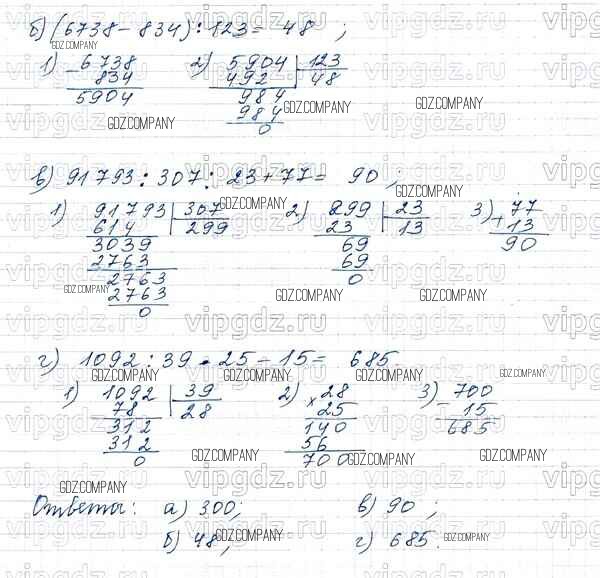 б) (6738 - 834) : 123 = 48 ;
1) - 6738 2) 5904 | 123
834 492 48
5904 984
984
0
в) 91793 : 307 : 23 + 77 = 90 ;
1) 91793 | 307 2) 299 | 23 3) + 77
614 299 23 13 13
3039 69 90
2763 69
2763 0
2763
0
г) 1092 : 39 · 25 - 15 = 685
1) 1092 | 39 2) × 28 3) - 700
78 28 25 15
312 140 685
312 56
0 700
Ответы: а) 300; в) 90 ;
б) 48; г) 685.
GDZ.COMPANY
vipgdz.ru